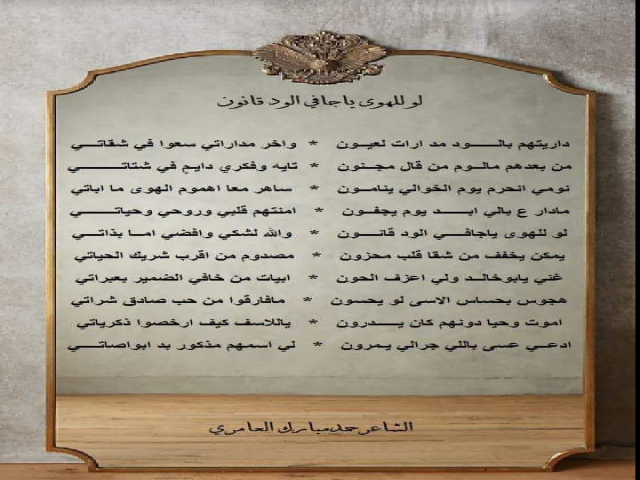 لو للهوى ياجافي الود قانون
داريتهم بالــود مد ارات لعيــون * واخر مداراتي سعوا في شقاتــي
من بعدهم مالــوم من قال مجــنون * تايه وفكري دايم في شتاتــي
نومي انحرم يوم الخوالي ينامــون * ساهر معا اهموم الهوى ما اباتي
مادار ع بالي ابــد يوم يجفــون * امنتهم قلبي وروحي وحياتــي
لو للهوى ياجافــي الود قانــون * والله لشكي وافضي امـا بذاتــي
يمكن يخفف من شقا قلب محزون * مصدوم من اقرب شريك الحياتي
غني يابوخالـد ولي اعزف الحون * ابيات من خافي الضمير بعبراتي
هجوس بحساس الاسى لو يحسون * مافارقوا من حب صادق شراتي
اموت وحيا دونهم كان يــدرون * ياللاسف كيف ارخصوا ذكرياتي
ادعـي عسى باللي جرالي يمرون * لي اسمهم مذكور بد ابواصاتــي
الشاعر حمد مبارك العامري